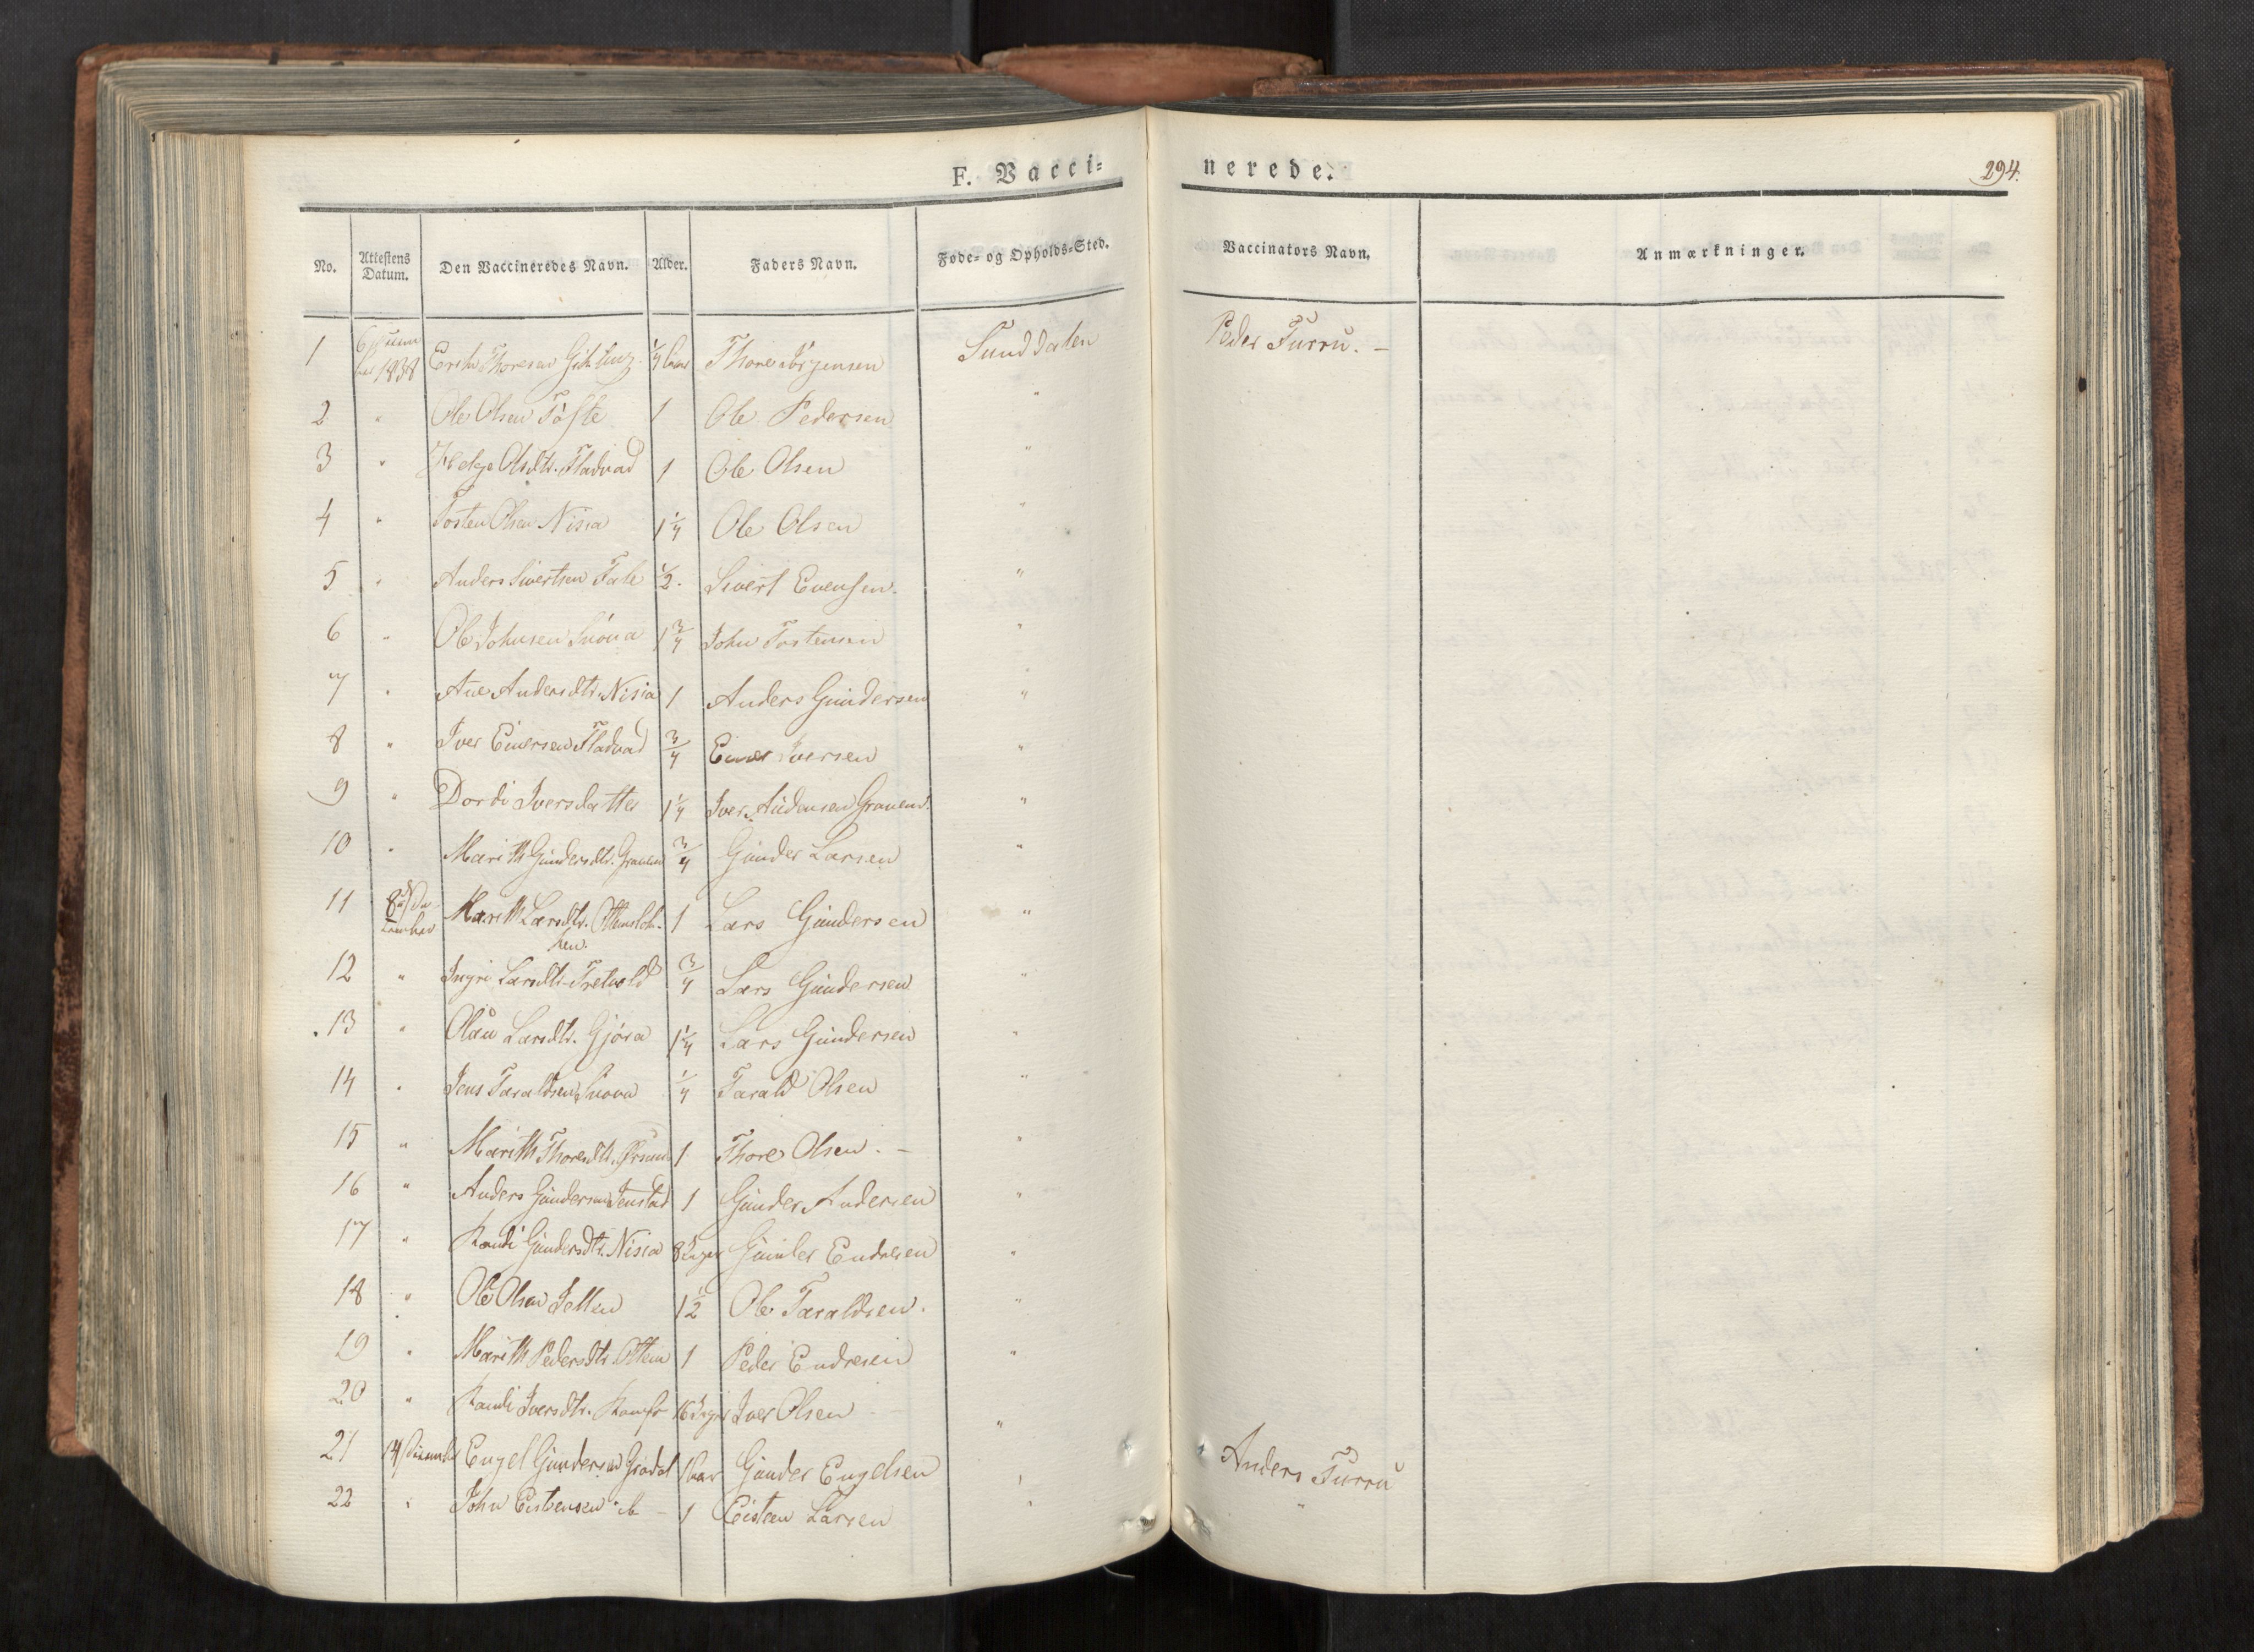 F. Vacci=
nerede.
294.
No. Attestens Datum. Den Vaccineredes Navn. Alder. Faders Navn. Føde= og Opholds=Sted. Vaccinators Navn. Anmærkninger.
1 1838 Erik Thoresen ¼ Aar Thore Jørgensen Sunddalen Peder Furru. –
2 " Ole Olsen Tofte 1 Ole Pedersen "
3 " Helge Olsdtr. Fladvad 1 Ole Olsen "
4 " Tosten Olsen Nisia 1¼ Ole Olsen "
5 " Anders Sivertsen Fale ½. Sivert Evensen. "
6 " Ole Johnsen Snøva 1¾ John Tostensen "
7 " Ane Andersdtr. Nisia 1 Anders Gundersen "
8 " Iver Einersen Fladvad ¾ Einer Iversen "
9 " Dordi Iversdatter 1¼ Iver Audensen Graven. "
10 " Marith Gundersdtr. Graven ¾ Gunder Larsen "
11 Marith Larsdtr. 1 Lars Gundersen "
12 " Ingri Larsdtr. Tretvold ¾ Lars Gundersen "
13 " Olau Larsdtr. Gjøra 1¼ Lars Gundersen "
14 " Jens Taraldsen Snøva ¼ Tarald Olsen "
15 " Marith Thoresdtr. 1 Thore Olsen. – "
16 " Anders Gundersen Jenstad 1 Gunder Andersen "
17 " Randi Gundersdtr. Nisia 8 Uger Gunder Endresen "
18 " Ole Olsen 1½ Ole Taraldsen. "
19 " Marith Pedersdtr. Ottem 1 Peder Endresen "
20 " Randi Iversdtr. 16 Uger Iver Olsen – "
21 14 December Engel Gundersen Grødal 1 Aar Gunder Engelsen " Anders Furru
22 " John Eistensen ib – 1 Eisten Larsen " "